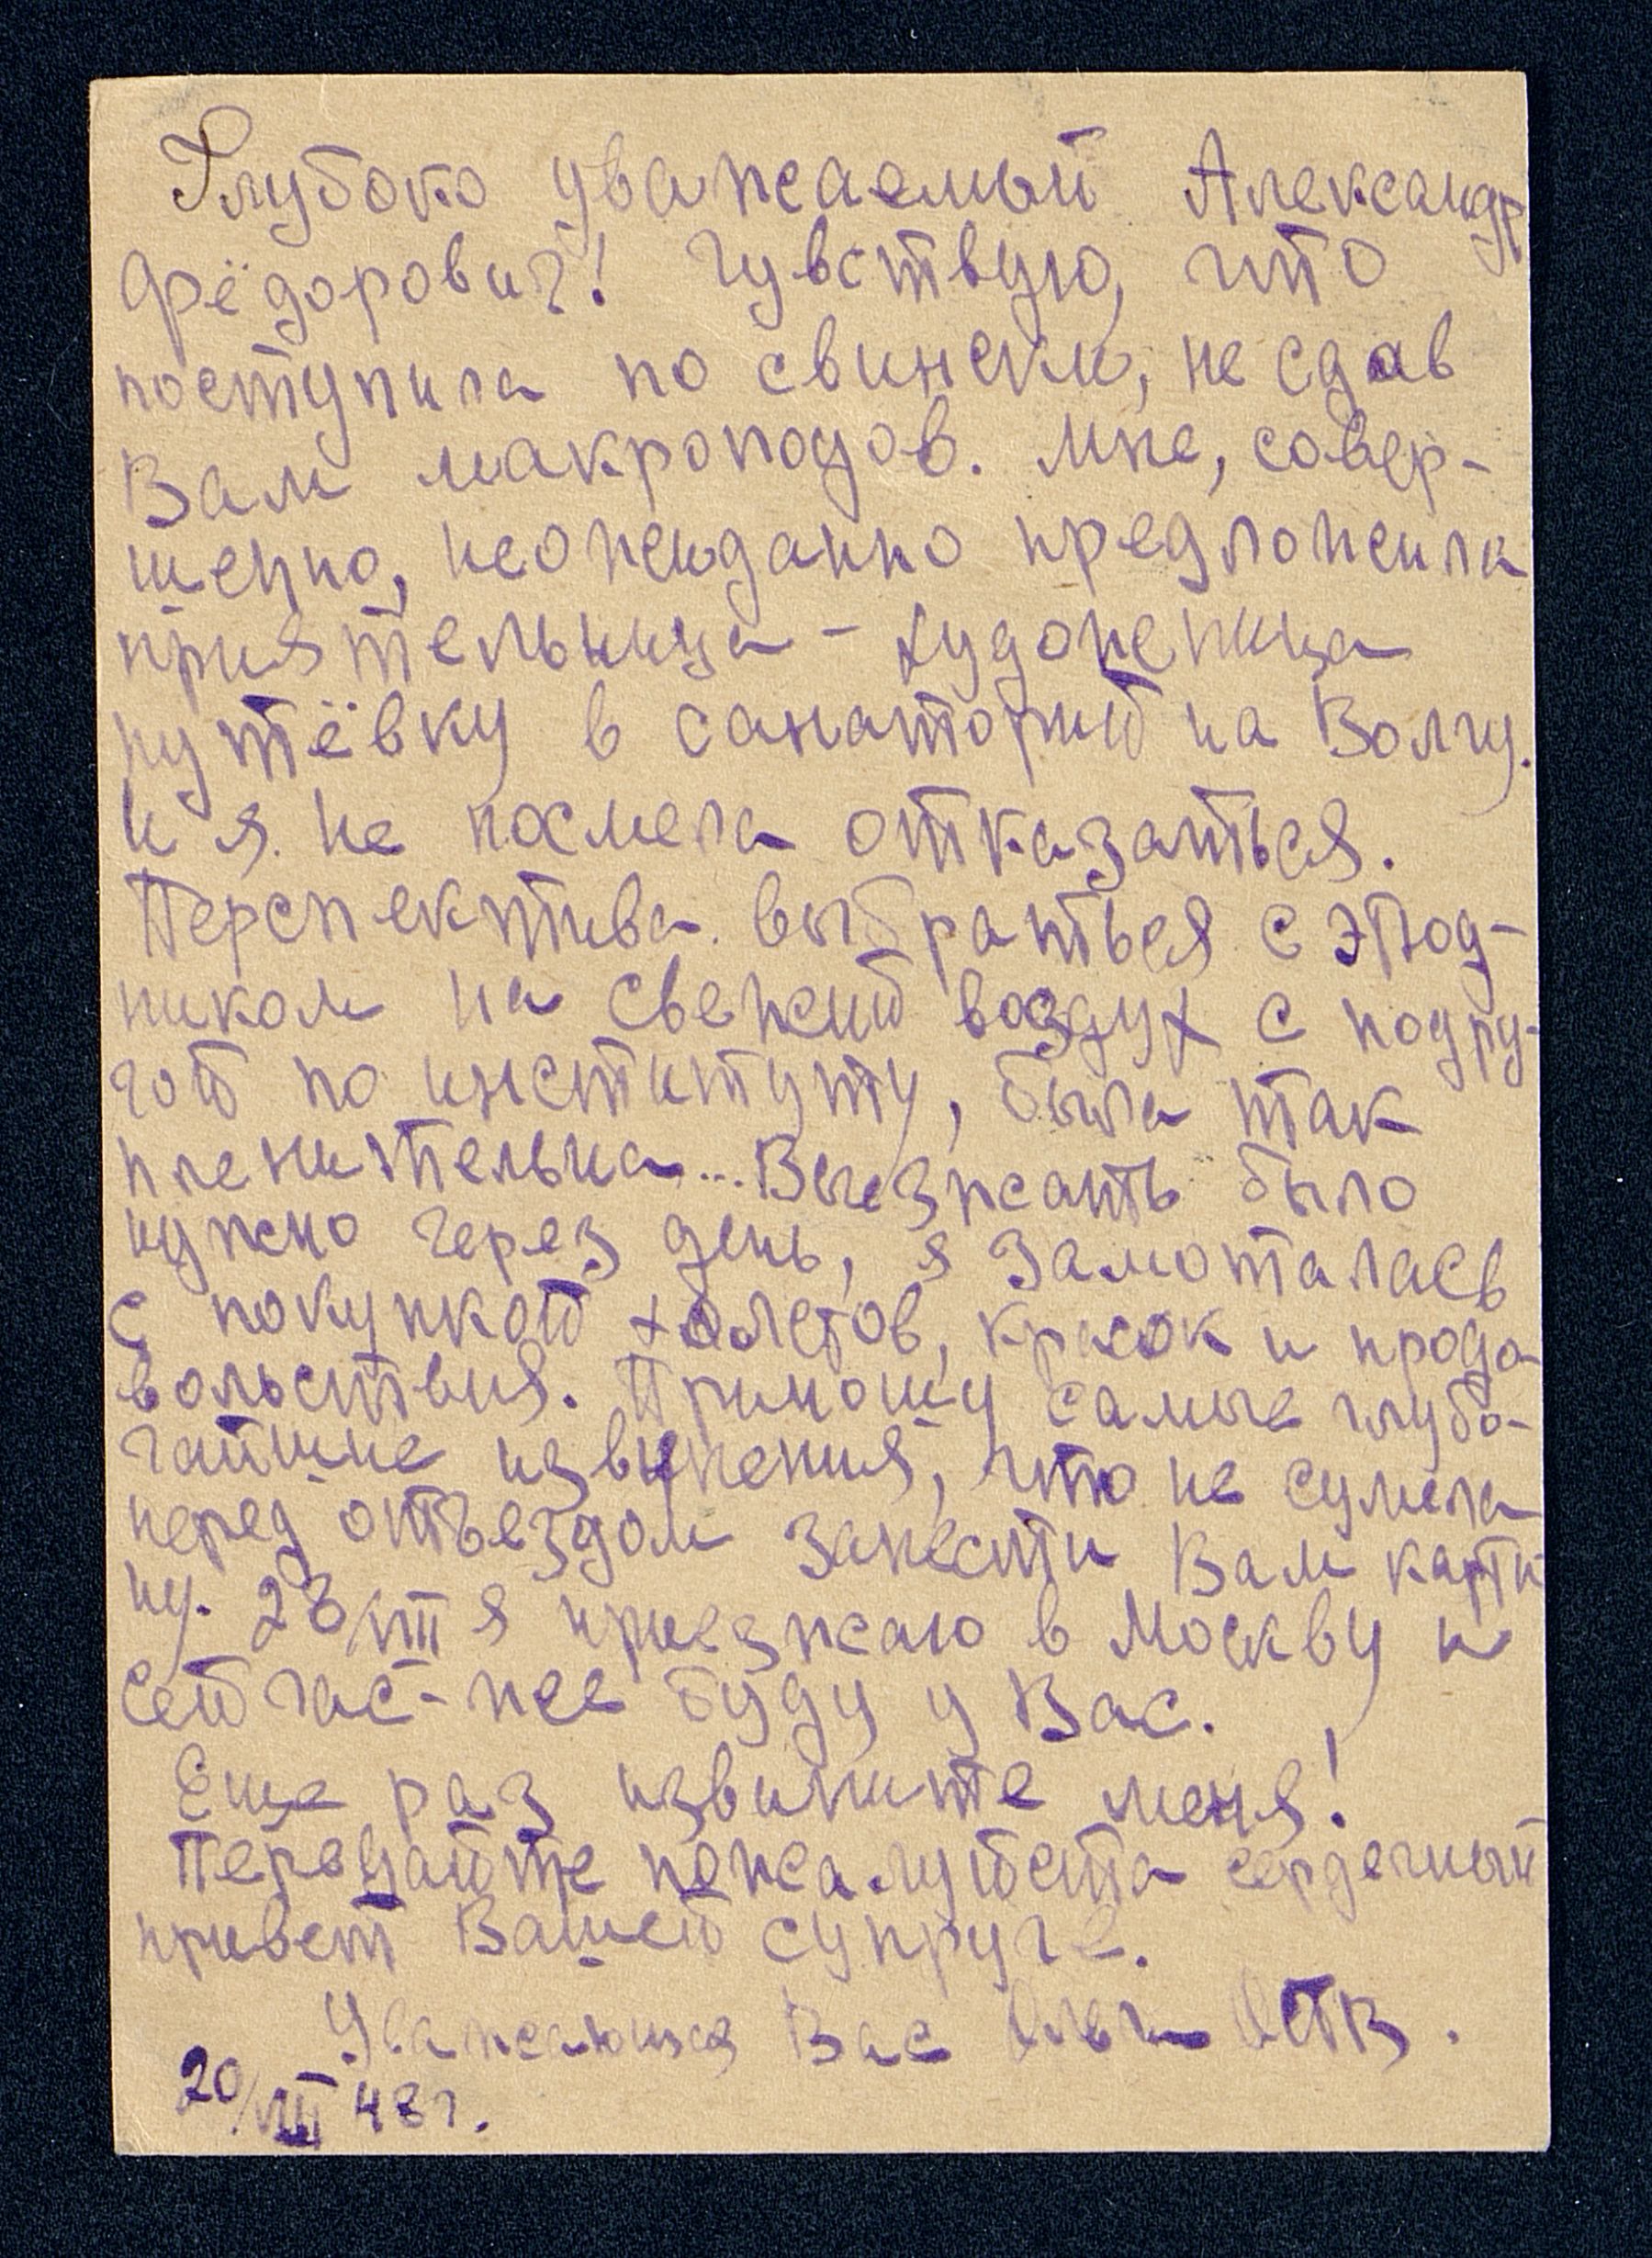 Глубоко уважаемый Александр
Фёдорович! Чувствую, что
поступила по свински, не сдав
Вам макроподов. Мне, совер-
шенно, неожиданно предложила
приятельница - художница
путёвку в санаторий на Волгу.
И я не посмела отказаться.
Перспектива выбраться с этюд-
ником на свежий воздух с подру-
гой по институту, была так
пленительна... Выезжать было
нужно через день, я замоталась
с покупкой холстов, красок и продо-
вольствия. Приношу самые глубо-
чайшие извинения, что не сумела
перед отъездом занести Вам карти
ну. 28/VIII я приезжаю в Москву и
сейчас-же буду у Вас.
Еще раз извините меня!
Передайте пожалуйста сердечный
привет Вашей супруге.
Уважающая Вас
20/VIII 48 г.